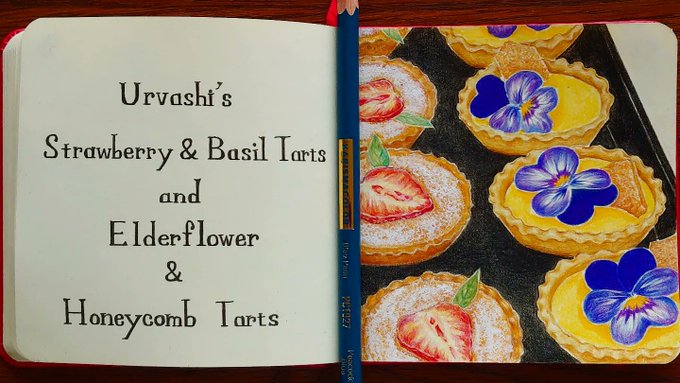 Urvashi's
Strawberry & Basil Tarts
and
Elderflower
&
Honeycomb Tarts